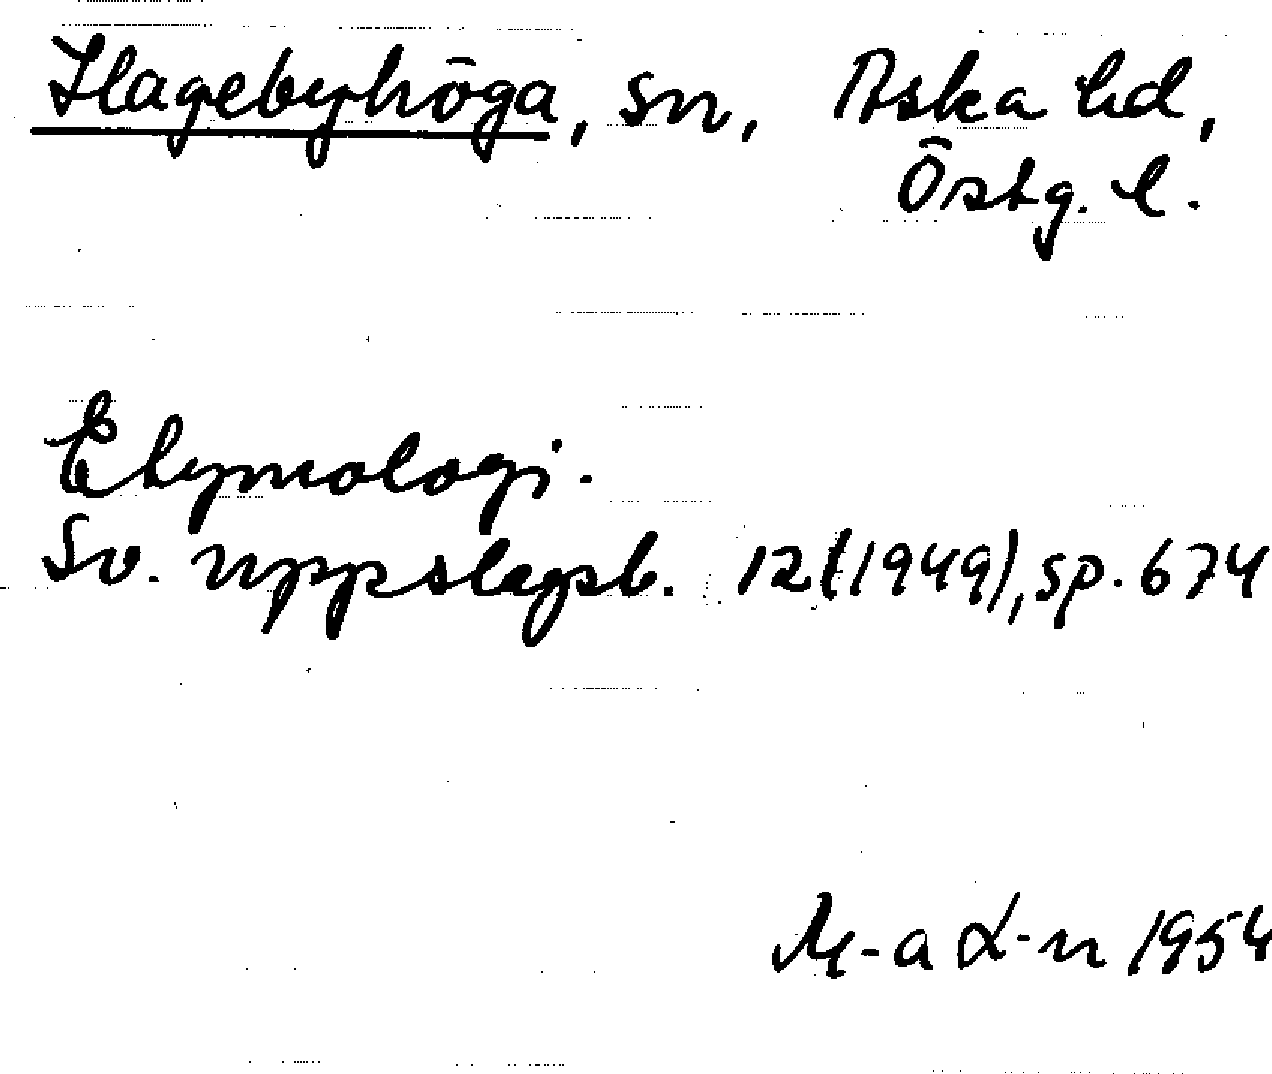 Hagebyhöga, sn, Aska hd,
Östg. l.
Etymologi.
Sv. uppslagsb. 12 (1949), sp. 674
M-a L-n 1954